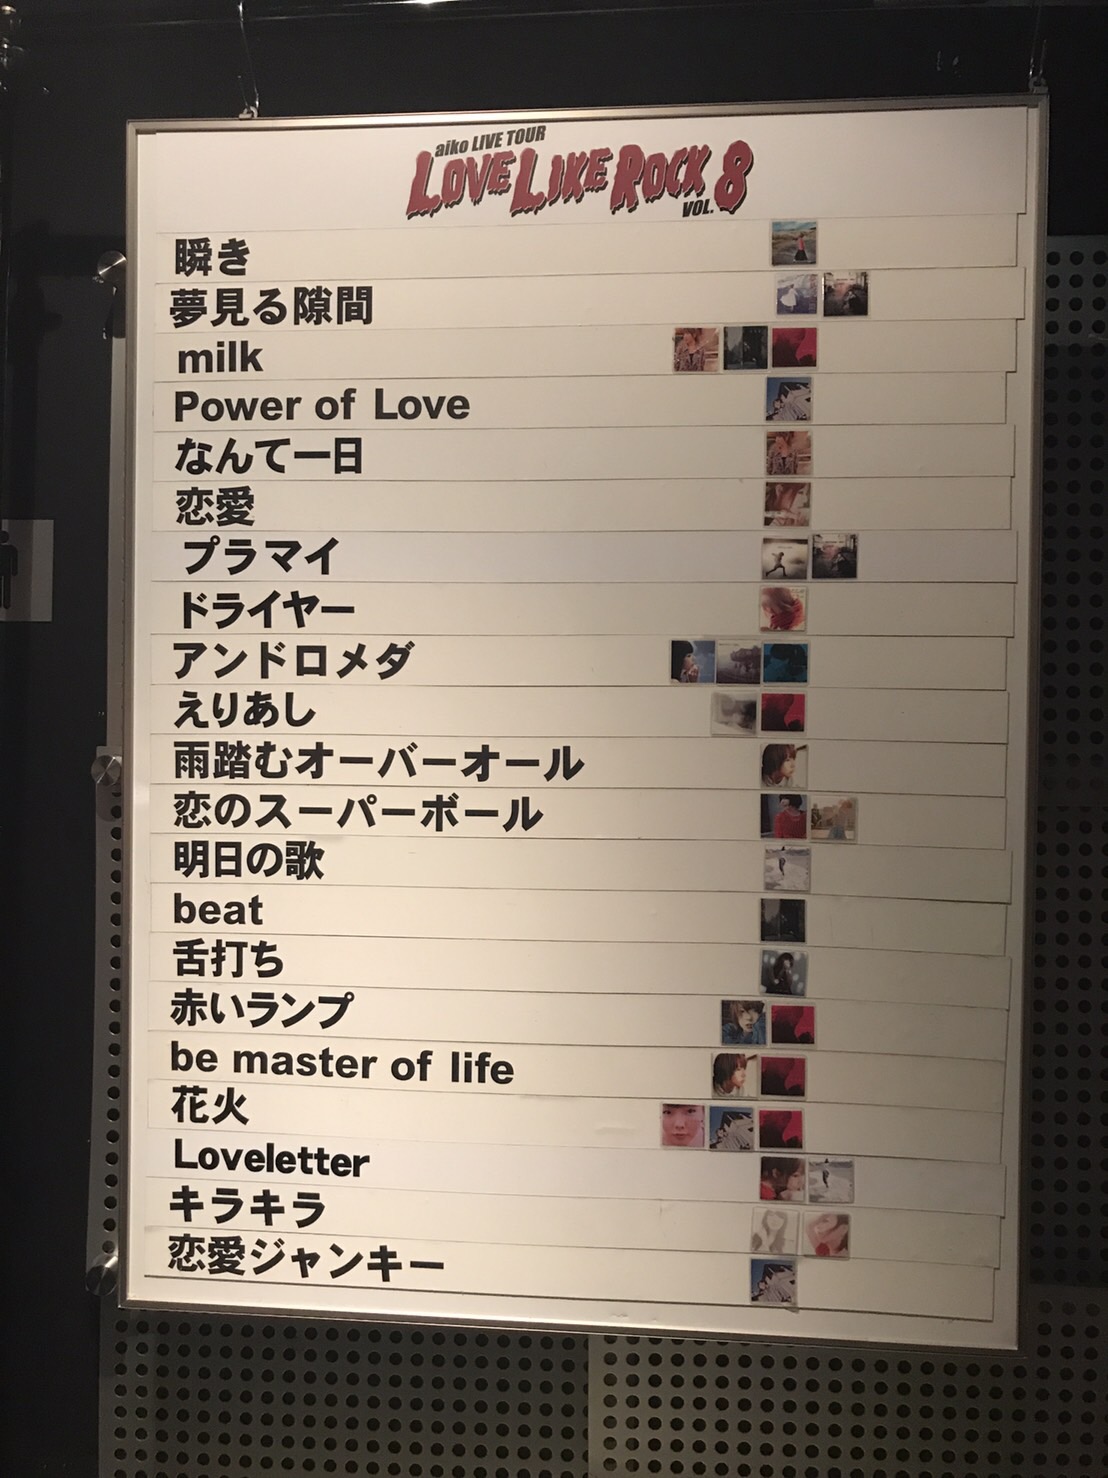 aiko LIVE TOUR
LOVE LIKE ROCK VOL. 8
瞬き
夢見る隙間
milk
Power of Love
なんて一日
恋愛
プラマイ
ドライヤー
アンドロメダ
えりあし
雨踏むオーバーオール
恋のスーパーボール
明日の歌
beat
舌打ち
赤いランプ
be master of life
花火
Loveletter
キラキラ
恋愛ジャンキー